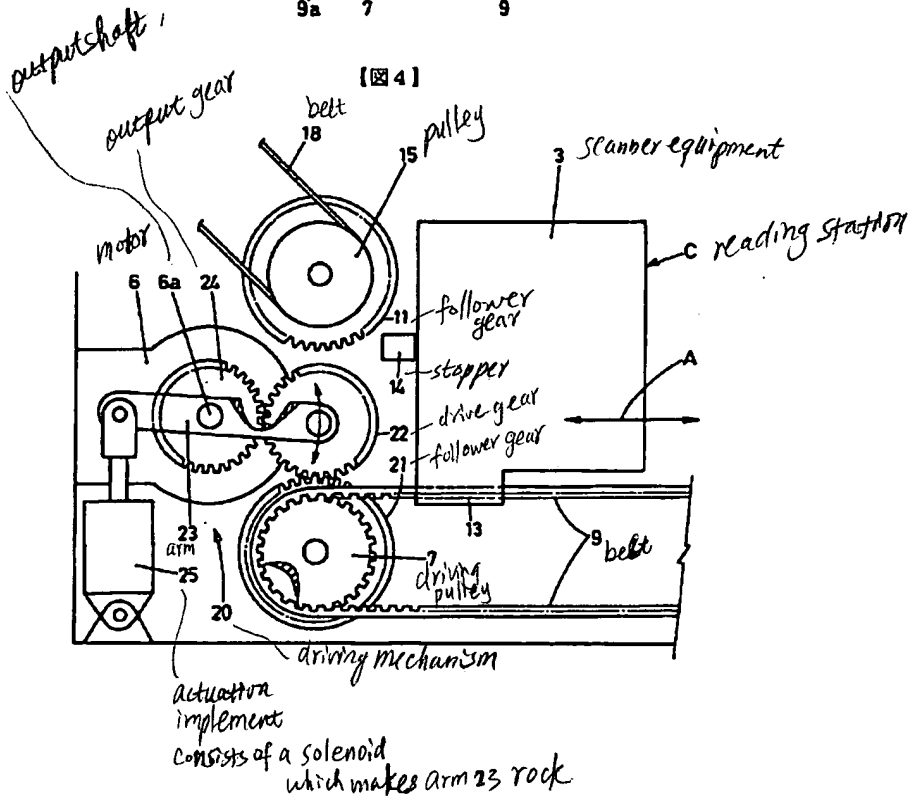 9a 7 9
outputshaft
output gear
【図4】
belt
18
15 pulley
3 scanner equipment
C reading station
motor
6 6a 24
11 follower
gear
14 stopper
A
22 drive gear
21 follower gear
13
9 belt
23
arm
25
7
driving
pulley
20
driving mechanism
actuation
implement
consists of a solenoid
which makes arm 23 rock